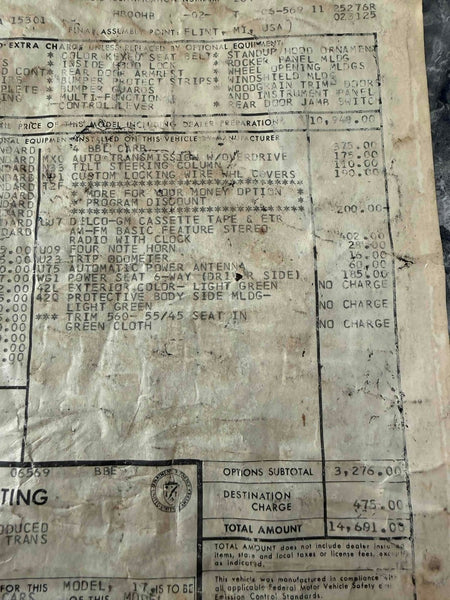 15301
H800HB -02- T 06-569 11 25276R
023125
FINAL ASSEMBLY POINT FLINT, MI, USA)
D EXTRA CHARGE UNLESS REPLACED BY OPTIONAL EQUIPMENT
* COLOR KEYED SEAT BELTS * STANDUP HOOD ORNAMENT
* INSIDE HOOD LOCK * ROCKER PANEL MLDG
CONT * REAR DOOR ARMREST * WHEEL OPENING MLDGS
* BUMPER PROTECT STRIPS * WINDSHIELD MLDG
PLETE * BUMPER GUARDS WOODGRAIN TRIM-DOORS
ING * MULTI-FUNCTION AND INSTRUMENT PANEL
CONTROL LEVER * REAR DOOR JAMB SWITC
PRICE OF THIS MODEL INCLUDING DEALER PREPARATION 10,940.00
EQUIPMENT INSTALLED ON THIS VEHICLE BY MANUFACTURER
BBL CARB 575.00
DARD MX0 AUTO TRANSMISSION W/OVERDRIVE 175.00
DARD TILT STEERING COLUMN 110.00
DARD CUSTOM LOCKING WIRE WHL COVERS 190.00
DARD
DARD *MORE FOR YOUR MONEY OPTION *
DARD * PROGRAM DISCOUNT * 200.00
DARD
DARD UU7 DELCO-GM CASSETTE TAPE & ETR
AW-FM BASIC FEATURE STEREO
RADIO WITH CLOCK 402.00
.00 U05 FOUR NOTE HORN 28.00
.00 U23 TRIP ODOMETER 16.00
.00 U75 AUTOMATIC POWER ANTENNA 60.00
.00 POWER SEAT 6-WAY (DRIVER SIDE) 185.00
.00 42L EXTERIOR COLOR- LIGHT GREEN NO CHARGE
.00 42Q PROTECTIVE BODY SIDE MLDG-
.00 LIGHT GREEN NO CHARGE
.00 *** TRIM 560- 55/45 SEAT IN
.00 GREEN CLOTH NO CHARGE
06569 BBE
OPTIONS SUBTOTAL 3,276.00
TING
DESTINATION
CHARGE 475.00
TOTAL AMOUNT 14,691.00
ODUCED
TRANS
TOTAL AMOUNT does not include dealer installed
items, state and local taxes or license fees, except
as indicated.
FOR THIS MODEL, 17 IS TO BE
This vehicle was manufactured in compliance with
all applicable Federal Motor Vehicle Safety and
Emission Control Standards.
CARS OF THIS MODEL